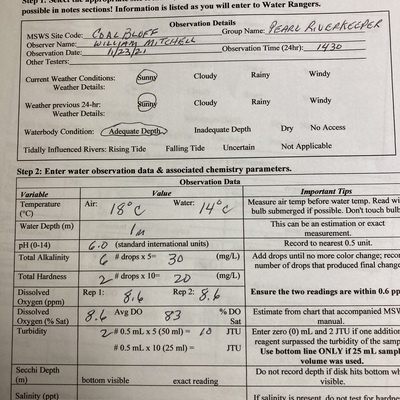 possible in notes sections! Information is listed as you will enter to Water Rangers.
Observation Details
MSWS Site Code: COAL BLUFF Group Name: PEARL RIVERKEEPER
Observer Name: WILLIAM MITCHELL
Observation Date: 11/23/21 Observation Time (24hr): 1430
Other Testers:
Current Weather Conditions: Sunny Cloudy Rainy Windy
Weather Details:
Weather previous 24-hr: Sunny Cloudy Rainy Windy
Weather Details:
Waterbody Condition: Adequate Depth Inadequate Depth Dry No Access
Tidally Influenced Rivers: Rising Tide Falling Tide Uncertain Not Applicable
Step 2: Enter water observation data & associated chemistry parameters.
Observation Data
Variable Value Important Tips
Temperature (°C) Air: 18°C Water: 14°C Measure air temp before water temp. Read wi
bulb submerged if possible. Don't touch bulb
Water Depth (m) 1m This can be an estimation or exact
measurement.
pH (0-14) 6.0 (standard international units) Record to nearest 0.5 unit.
Total Alkalinity 6 # drops x 5= 30 (mg/L) Add drops until no more color change; recor
number of drops that produced final change
Total Hardness 2 # drops x 10= 20 (mg/L)
Dissolved Oxygen (ppm) Rep 1: 8.6 Rep 2: 8.6 Ensure the two readings are within 0.6 pp
Dissolved Oxygen (% Sat) 8.6 Avg DO 83 % DO Sat Estimate from chart that accompanied MSW
manual.
Turbidity 2 # 0.5 mL x 5 (50 ml) = 10 JTU Enter zero (0) mL and 2 JTU if one addition
reagent surpassed the turbidity of the samp
# 0.5 mL x 10 (25 ml) = JTU Use bottom line ONLY if 25 mL sampl
volume was used.
Secchi Depth (m) bottom visible exact reading Do not record depth if disk hits bottom wh
visible.
Salinity (ppt) If salinity is present, do not test for hardne